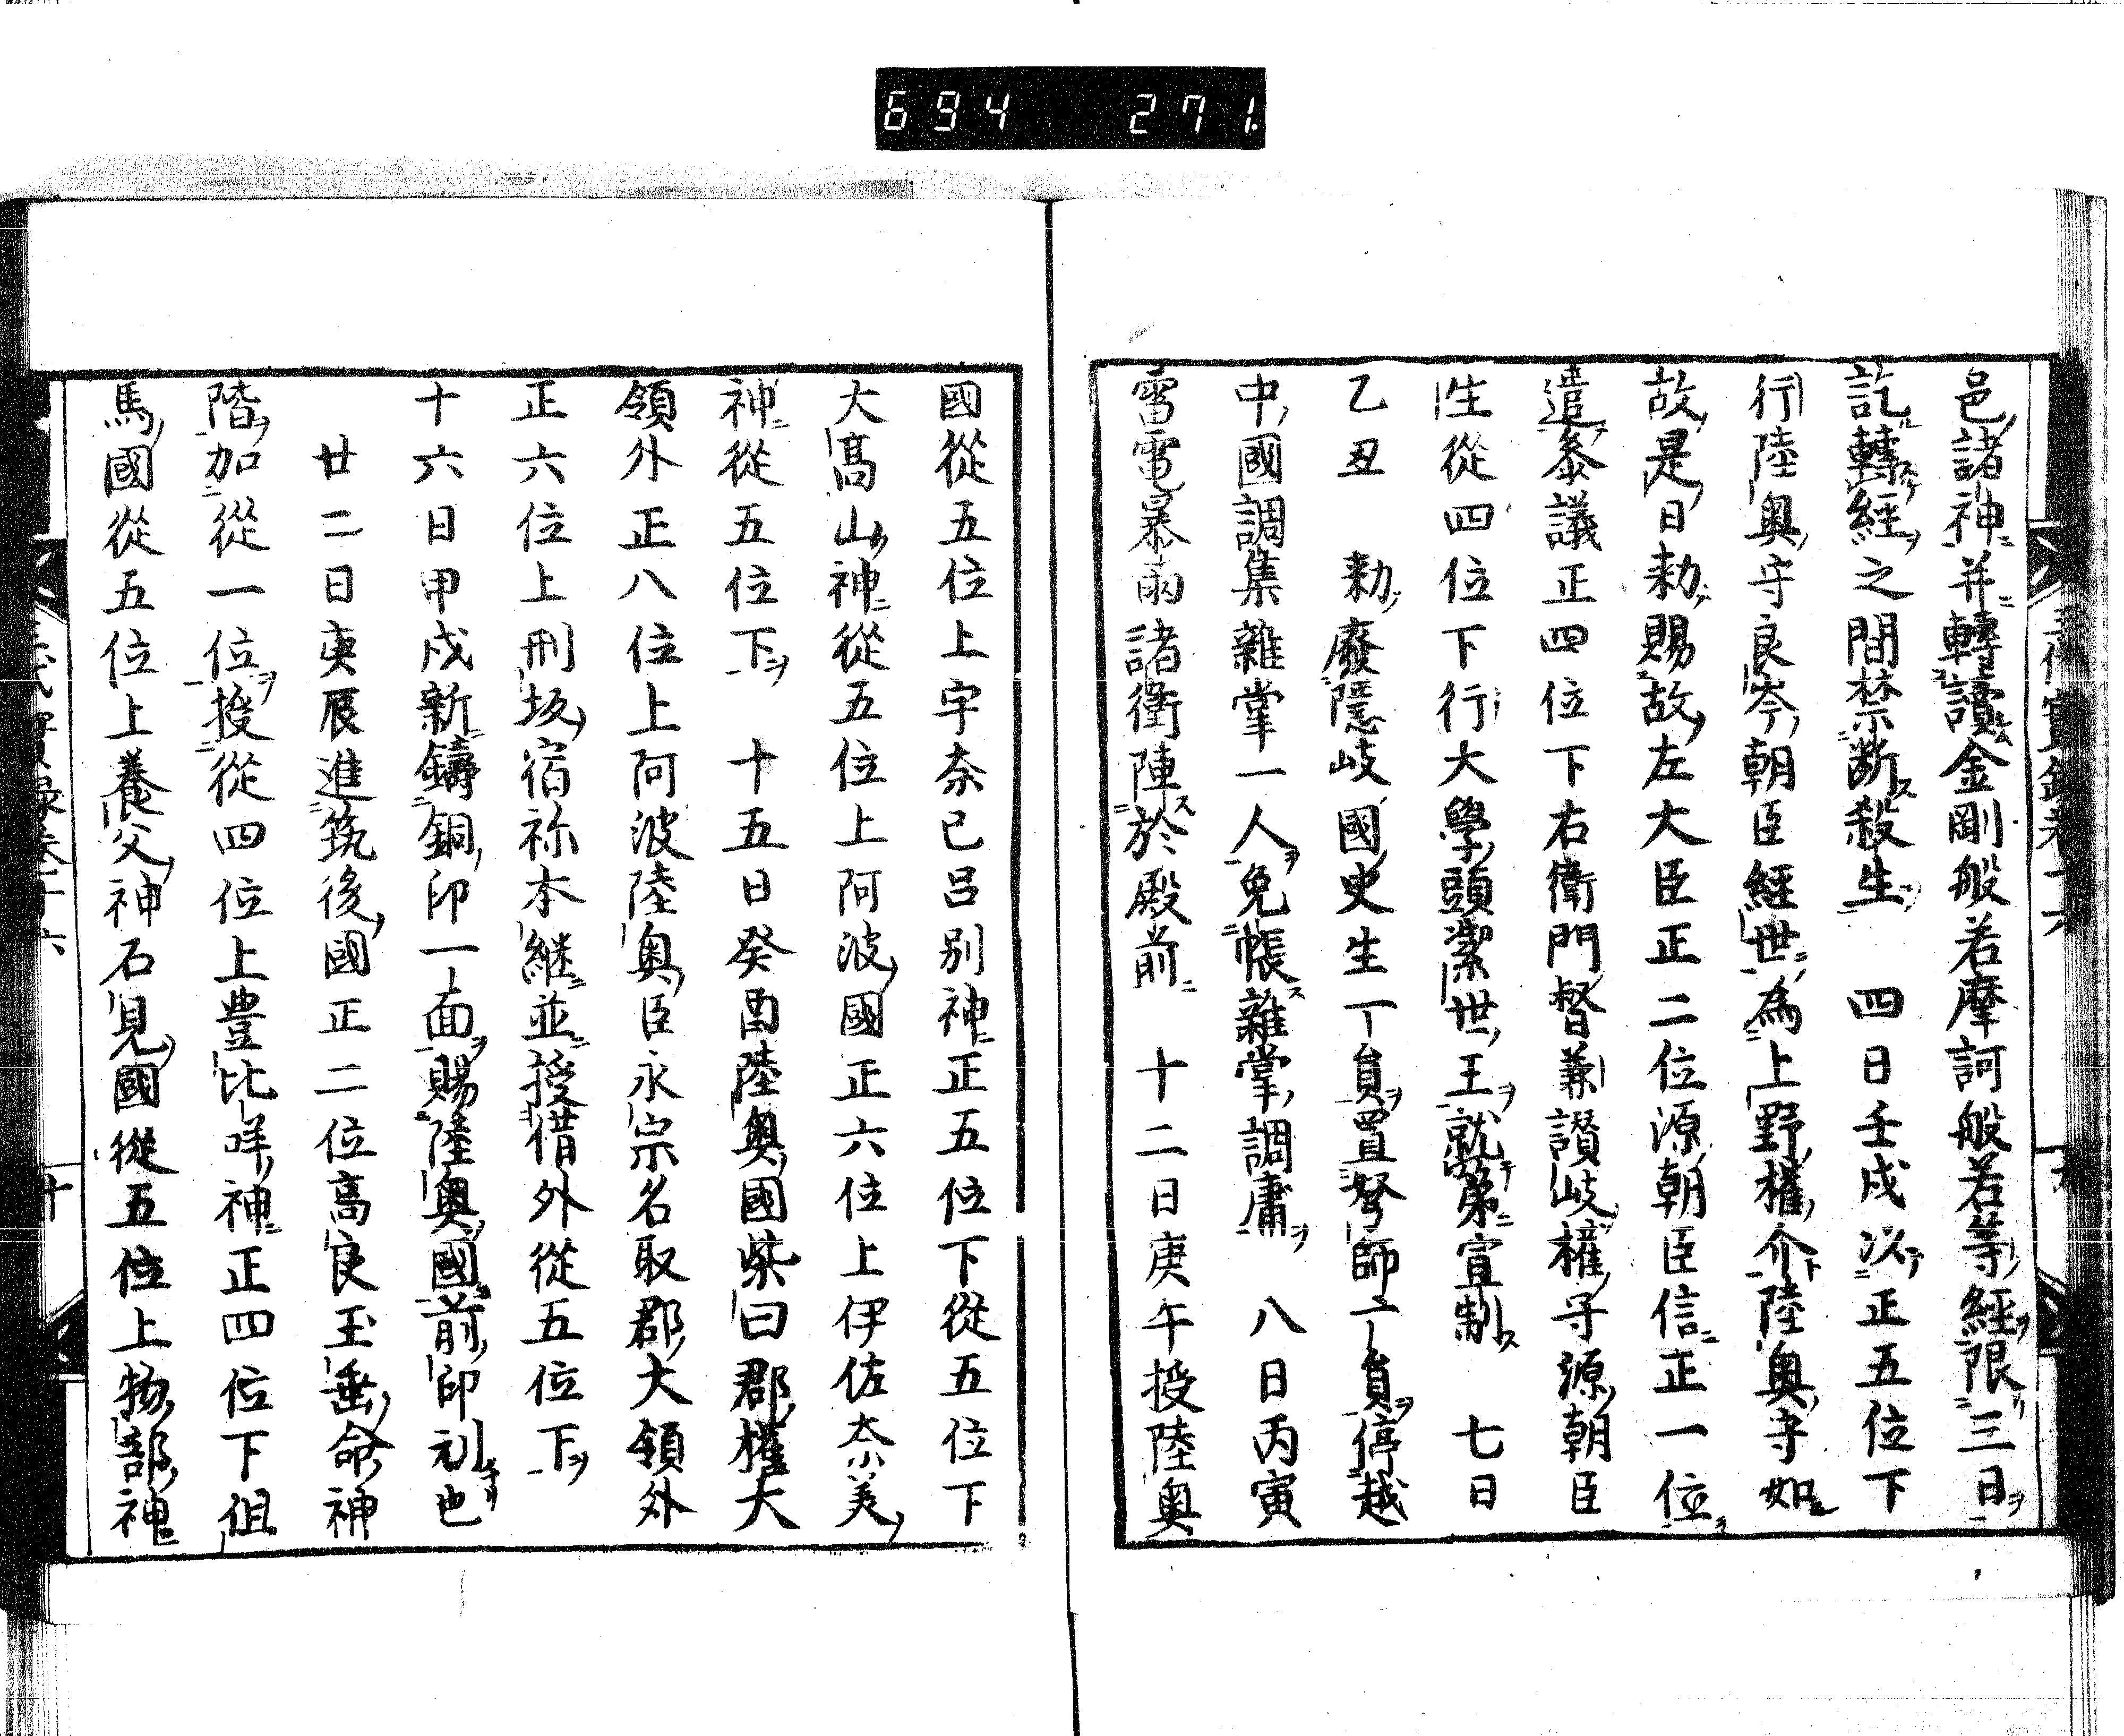 694 271
邑諸神并轉讀金剛般若摩訶般若等經限三日
訖轉經之間禁斷殺生　四日壬戌以正五位下
行陸奥守良岑朝臣經世為上野權介陸奥守如
故是日勅賜故左大臣正二位源朝臣信正一位
遣叅議正四位下右衛門督兼讃岐權守源朝臣
生從四位下行大學頭潔世王就第宣制　七日
乙丑　勅廢隱岐國史生一員置弩師一員停越
中國調集雜掌一人免帳雜掌調庸　八日丙寅
雷電暴雨諸衛陣於殿前　十二日庚午授陸奥
國從五位上宇奈己呂别神正五位下從五位下
大高山神從五位上阿波國正六位上伊佐奈美
神從五位下　十五日癸酉陸奥國柴田郡權大
領外正八位上阿波陸奥臣永宗名取郡大領外
正六位上刑坂宿祢本継並授借外從五位下
十六日甲戌新鑄銅印一面賜陸奥國前印刓也
廿二日庚辰進筑後國正二位高良玉垂命神
階加從一位授從四位上豊比咩神正四位下但
馬國從五位上養父神石見國從五位上物部神